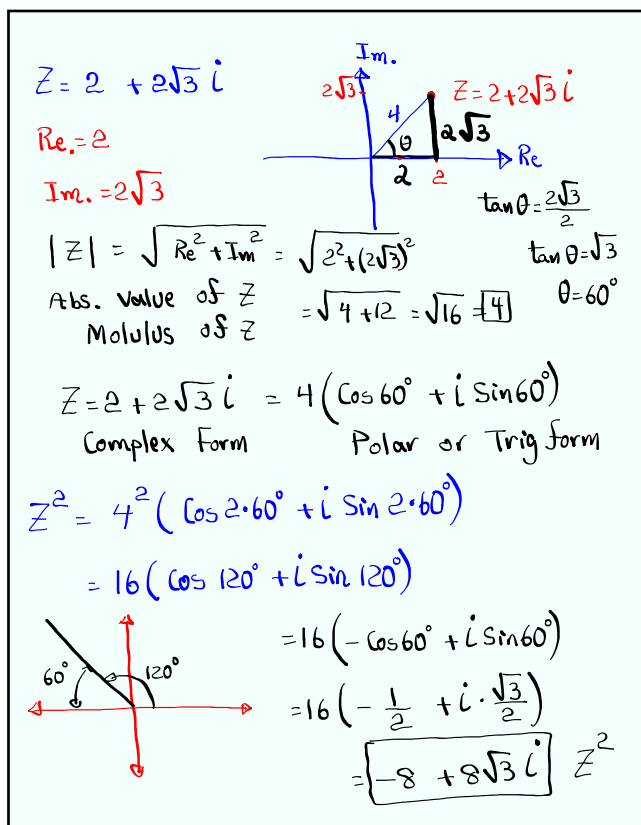 Z = 2 + 2√3 i
Re. = 2
Im. = 2√3
Im.
2√3
Z = 2 + 2√3 i
4
θ
2√3
Re
2
2
tan θ = 2√3/2
tan θ = √3
θ = 60°
|Z| = √(Re² + Im²) = √(2² + (2√3)²)
Abs. Value of Z
Molulus of Z
= √(4 + 12) = √16 = 4
Z = 2 + 2√3 i = 4(Cos 60° + i Sin 60°)
Complex Form
Polar or Trig form
Z² = 4²(Cos 2·60° + i Sin 2·60°)
= 16(Cos 120° + i Sin 120°)
60°
120°
= 16(-Cos 60° + i Sin 60°)
= 16(-1/2 + i · √3/2)
= -8 + 8√3 i Z²